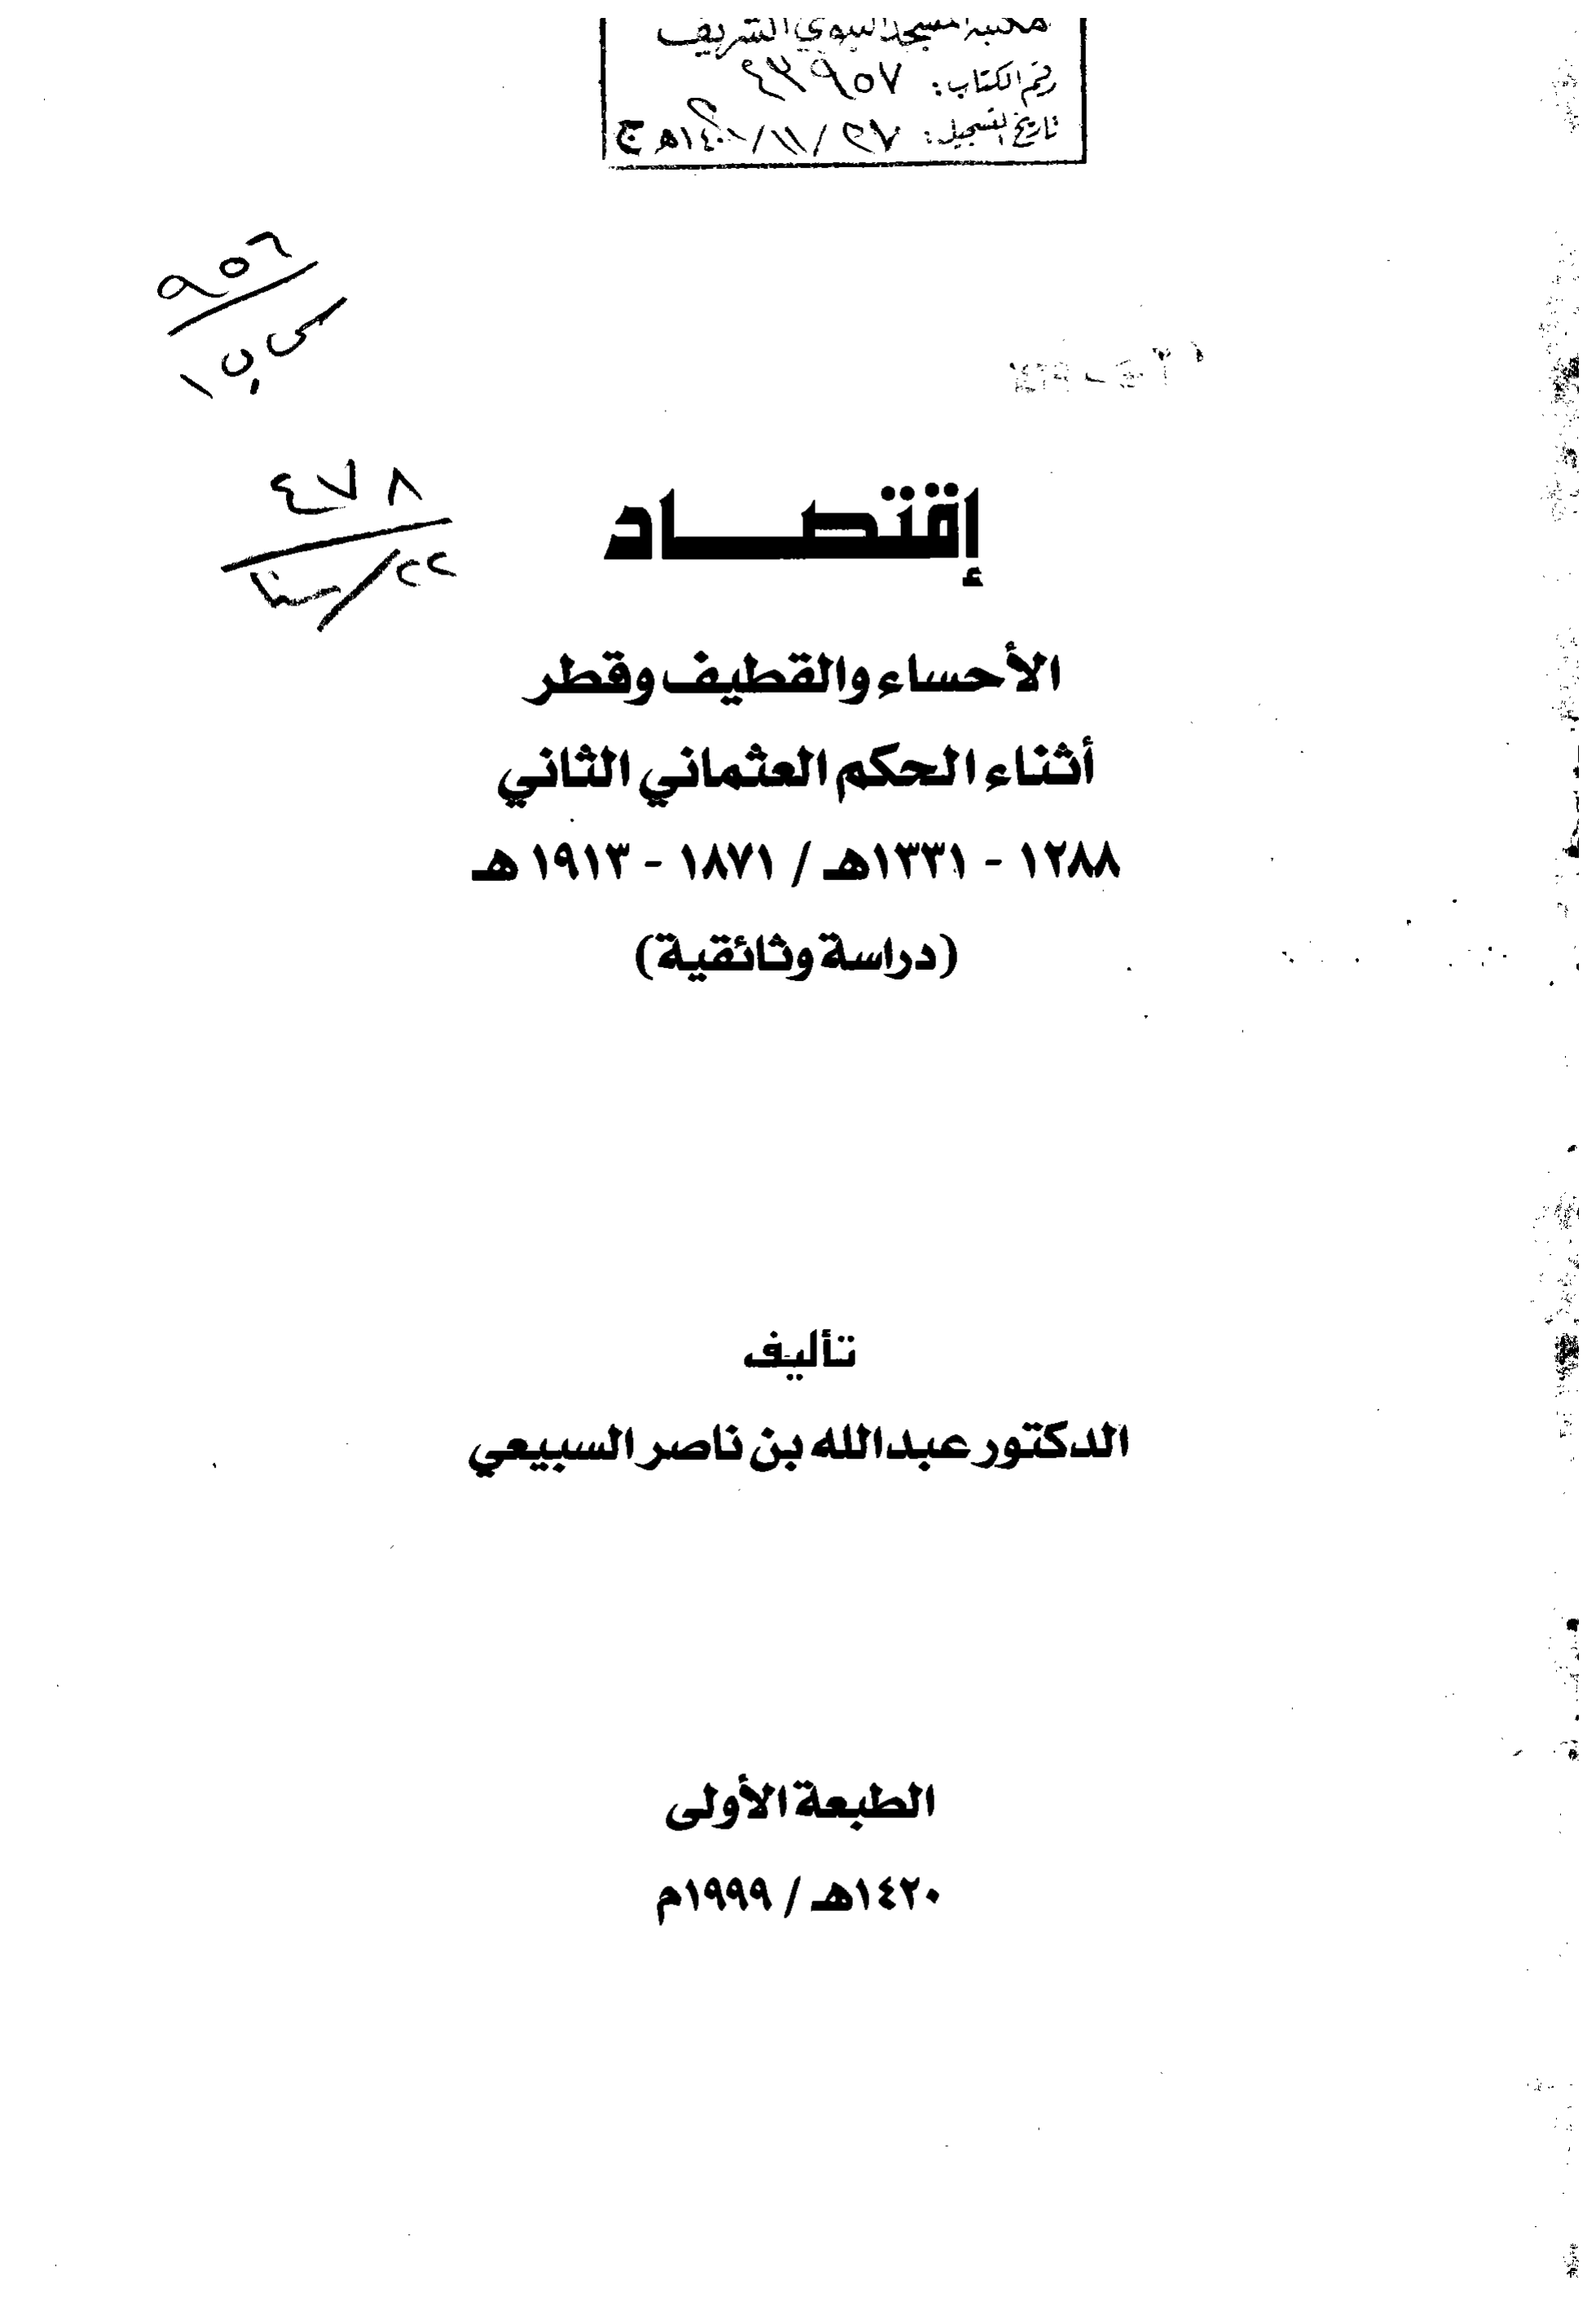 مكتبة المسجد النبوي الشريف
رقم الكتاب: ٤٣٩٥٧
تاريخ التسجيل: ٢٧ / ١١ /
٩٥٦
٤٧٨
٢٢ /
إقتصاد
الأحساء والقطيف وقطر
أثناء الحكم العثماني الثاني
١٢٨٨ - ١٣٣١هـ / ١٨٧١ - ١٩١٣ هـ
(دراسة وثائقية)
تأليف
الدكتور عبدالله بن ناصر السبيعي
الطبعة الأولى
١٤٢٠هـ / ١٩٩٩م